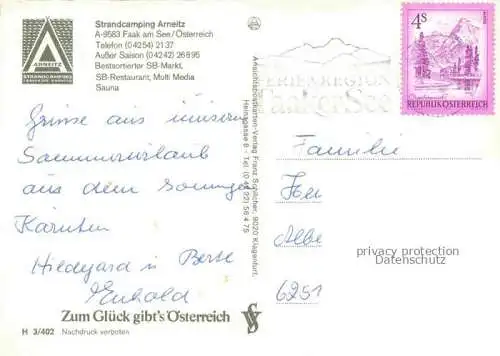 ARNEITZ
STRANDCAMPING
Strandcamping Arneitz
A-9583 Faak am See/Österreich
Telefon (04254) 2137
Außer Saison (04242) 26895
Bestsortierter SB-Markt,
SB-Restaurant, Multi Media
Sauna
Grüsse aus unserem
Sommerurlaub
aus dem sonnigen
Kärnten
Hildegard
Zum Glück gibt's Österreich
H 3/402 Nachdruck verboten
Ansichtskarten-Verlag Franz Schilcher, 9020 Klagenfurt,
FERIENREGION
Faaker See
4S
REPUBLIK ÖSTERREICH
Familie
6251
privacy protection
Datenschutz